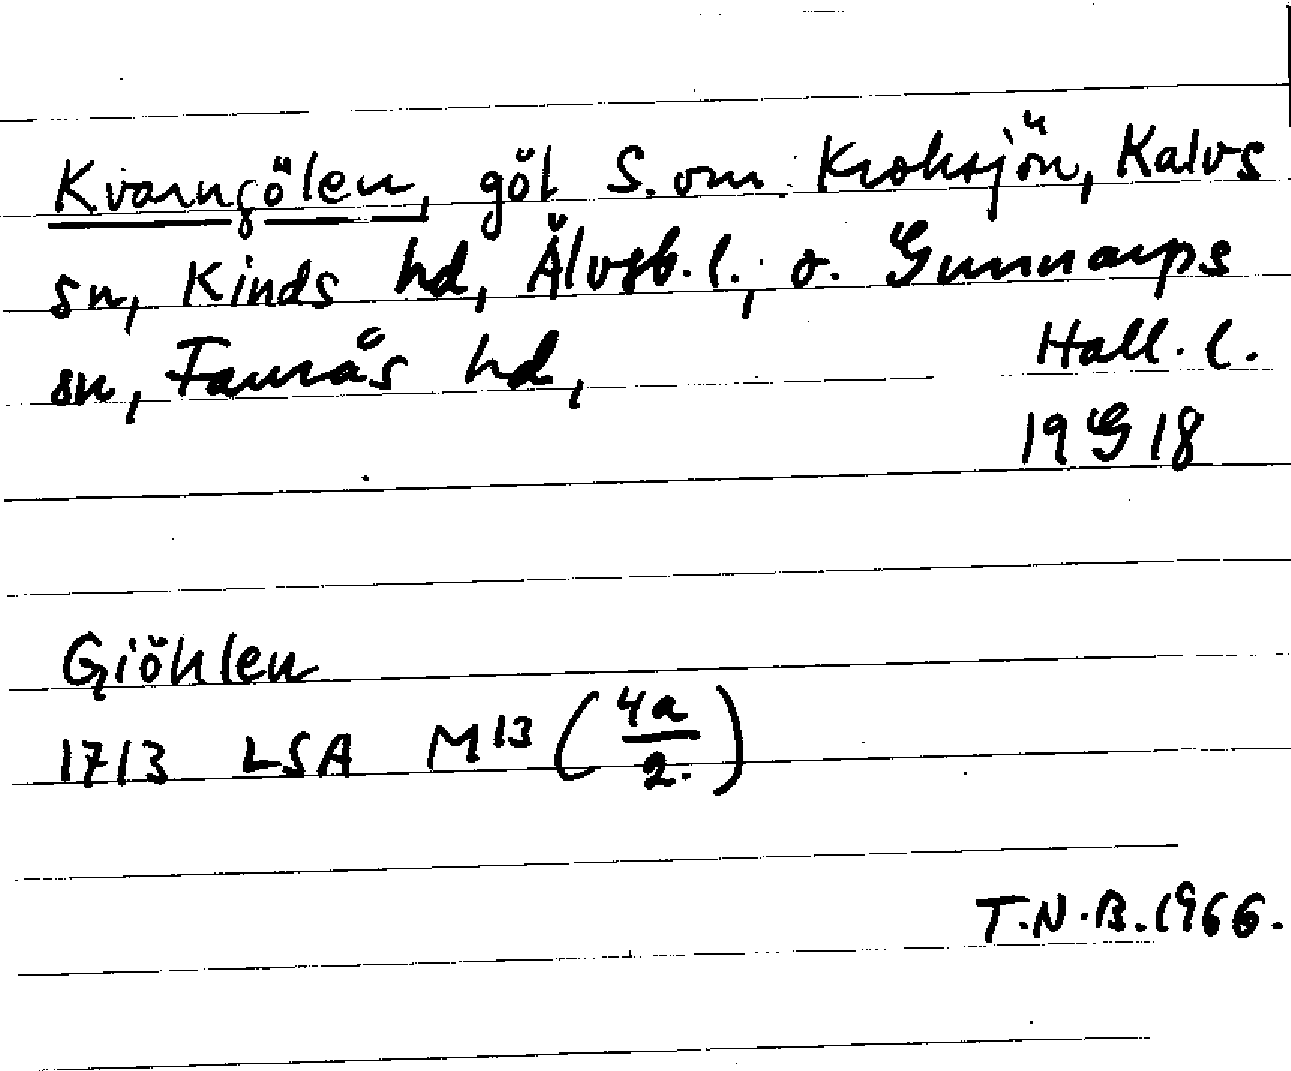 Kvarngölen, göl S. om Kroksjön, Kalvs
sn, Kinds hd, Älvsb. l., o. Gunnarps
sn, Faurås hd, Hall. l.
19 G 18
Giöhlen
1713 LSA M13 (4a/2.)
T.N.B. 1966.